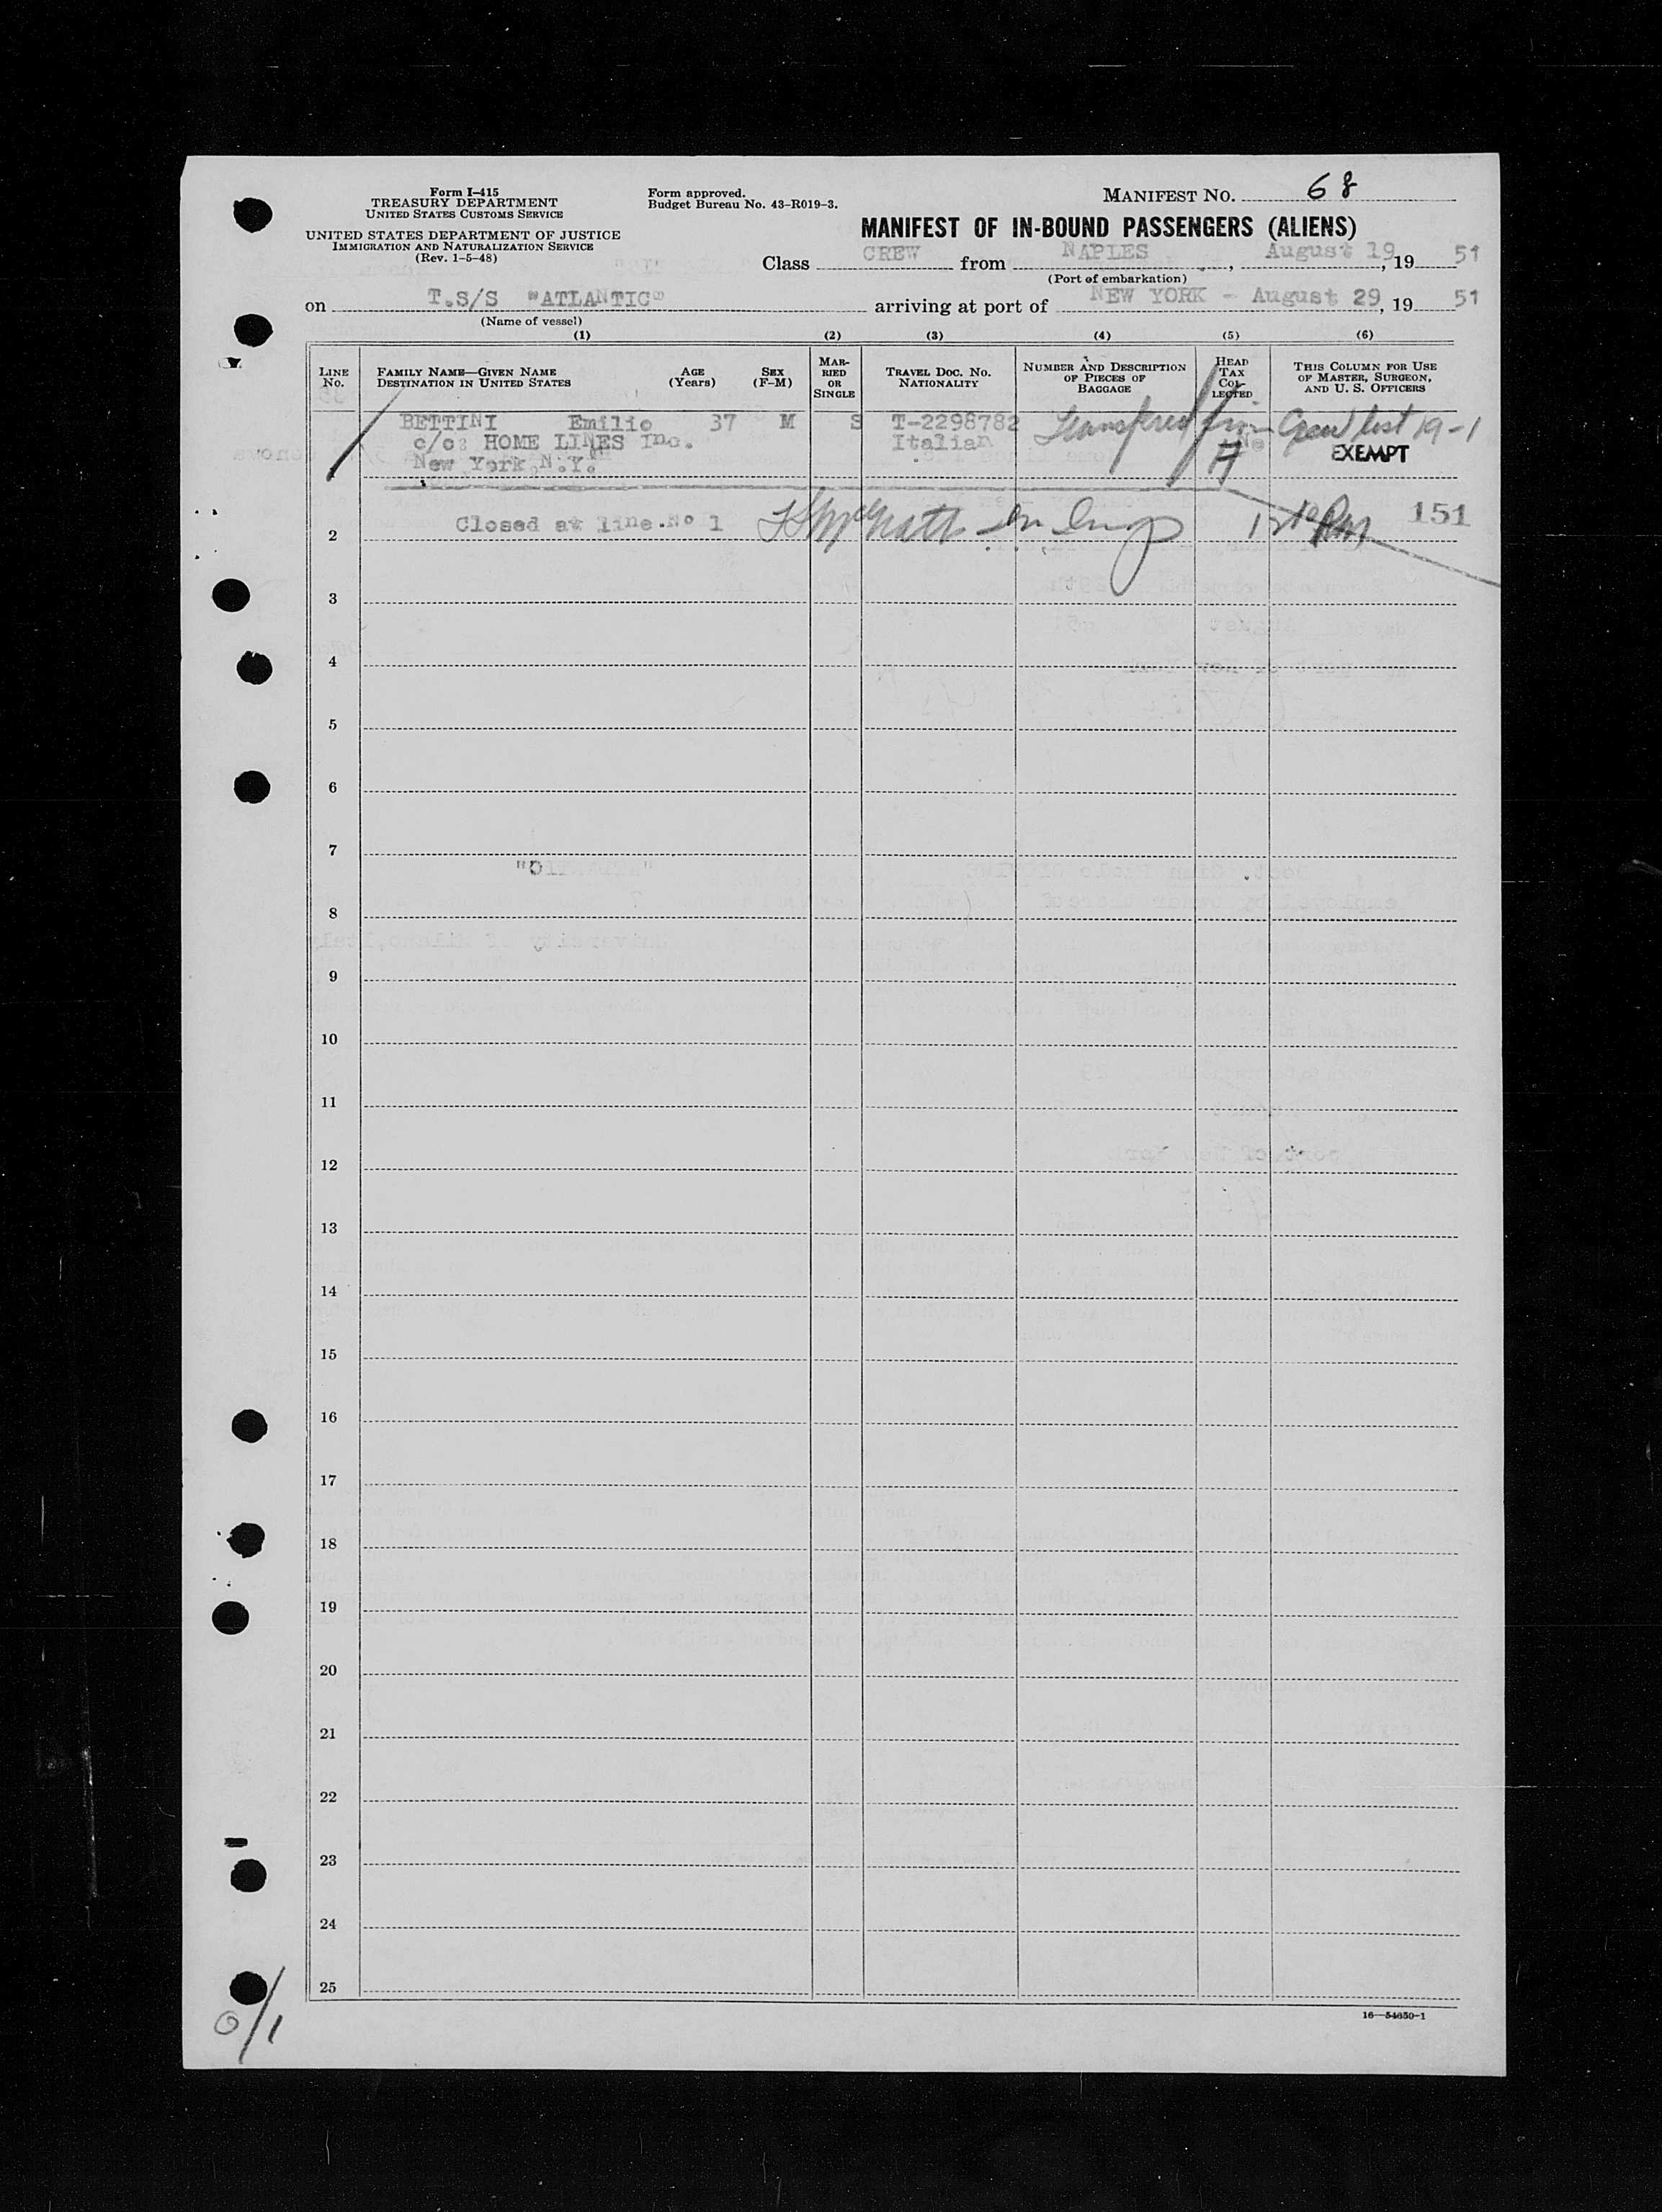 Form I-415
TREASURY DEPARTMENT
UNITED STATES CUSTOMS SERVICE
UNITED STATES DEPARTMENT OF JUSTICE
IMMIGRATION AND NATURALIZATION SERVICE
(Rev. 1-5-48)
Form approved.
Budget Bureau No. 43-R019-3.
MANIFEST NO. 68
MANIFEST OF IN-BOUND PASSENGERS (ALIENS)
Class CREW from NAPLES, August 19, 1951
(Port of embarkation)
on T.S/S "ATLANTIC" arriving at port of NEW YORK - August 29, 1951
(Name of vessel)
(1) (2) (3) (4) (5) (6)
LINE No.
FAMILY NAME—GIVEN NAME DESTINATION IN UNITED STATES
AGE (Years)
SEX (F-M)
MARRIED OR SINGLE
TRAVEL DOC. NO. NATIONALITY
NUMBER AND DESCRIPTION OF PIECES OF BAGGAGE
HEAD TAX COLLECTED
THIS COLUMN FOR USE OF MASTER, SURGEON, AND U. S. OFFICERS
BETTINI Emilio 37 M S T-2298782 Transferred from Crew list 19-1
c/o: HOME LINES Inc. Italian
New York, N.Y. EXEMPT
2 Closed at line No 1 151
3
4
5
6
7
8
9
10
11
12
13
14
15
16
17
18
19
20
21
22
23
24
25
16—54650-1
0/1